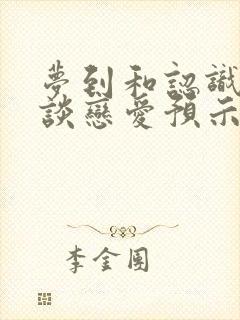 夢到和認識
談戀愛預示
李金團